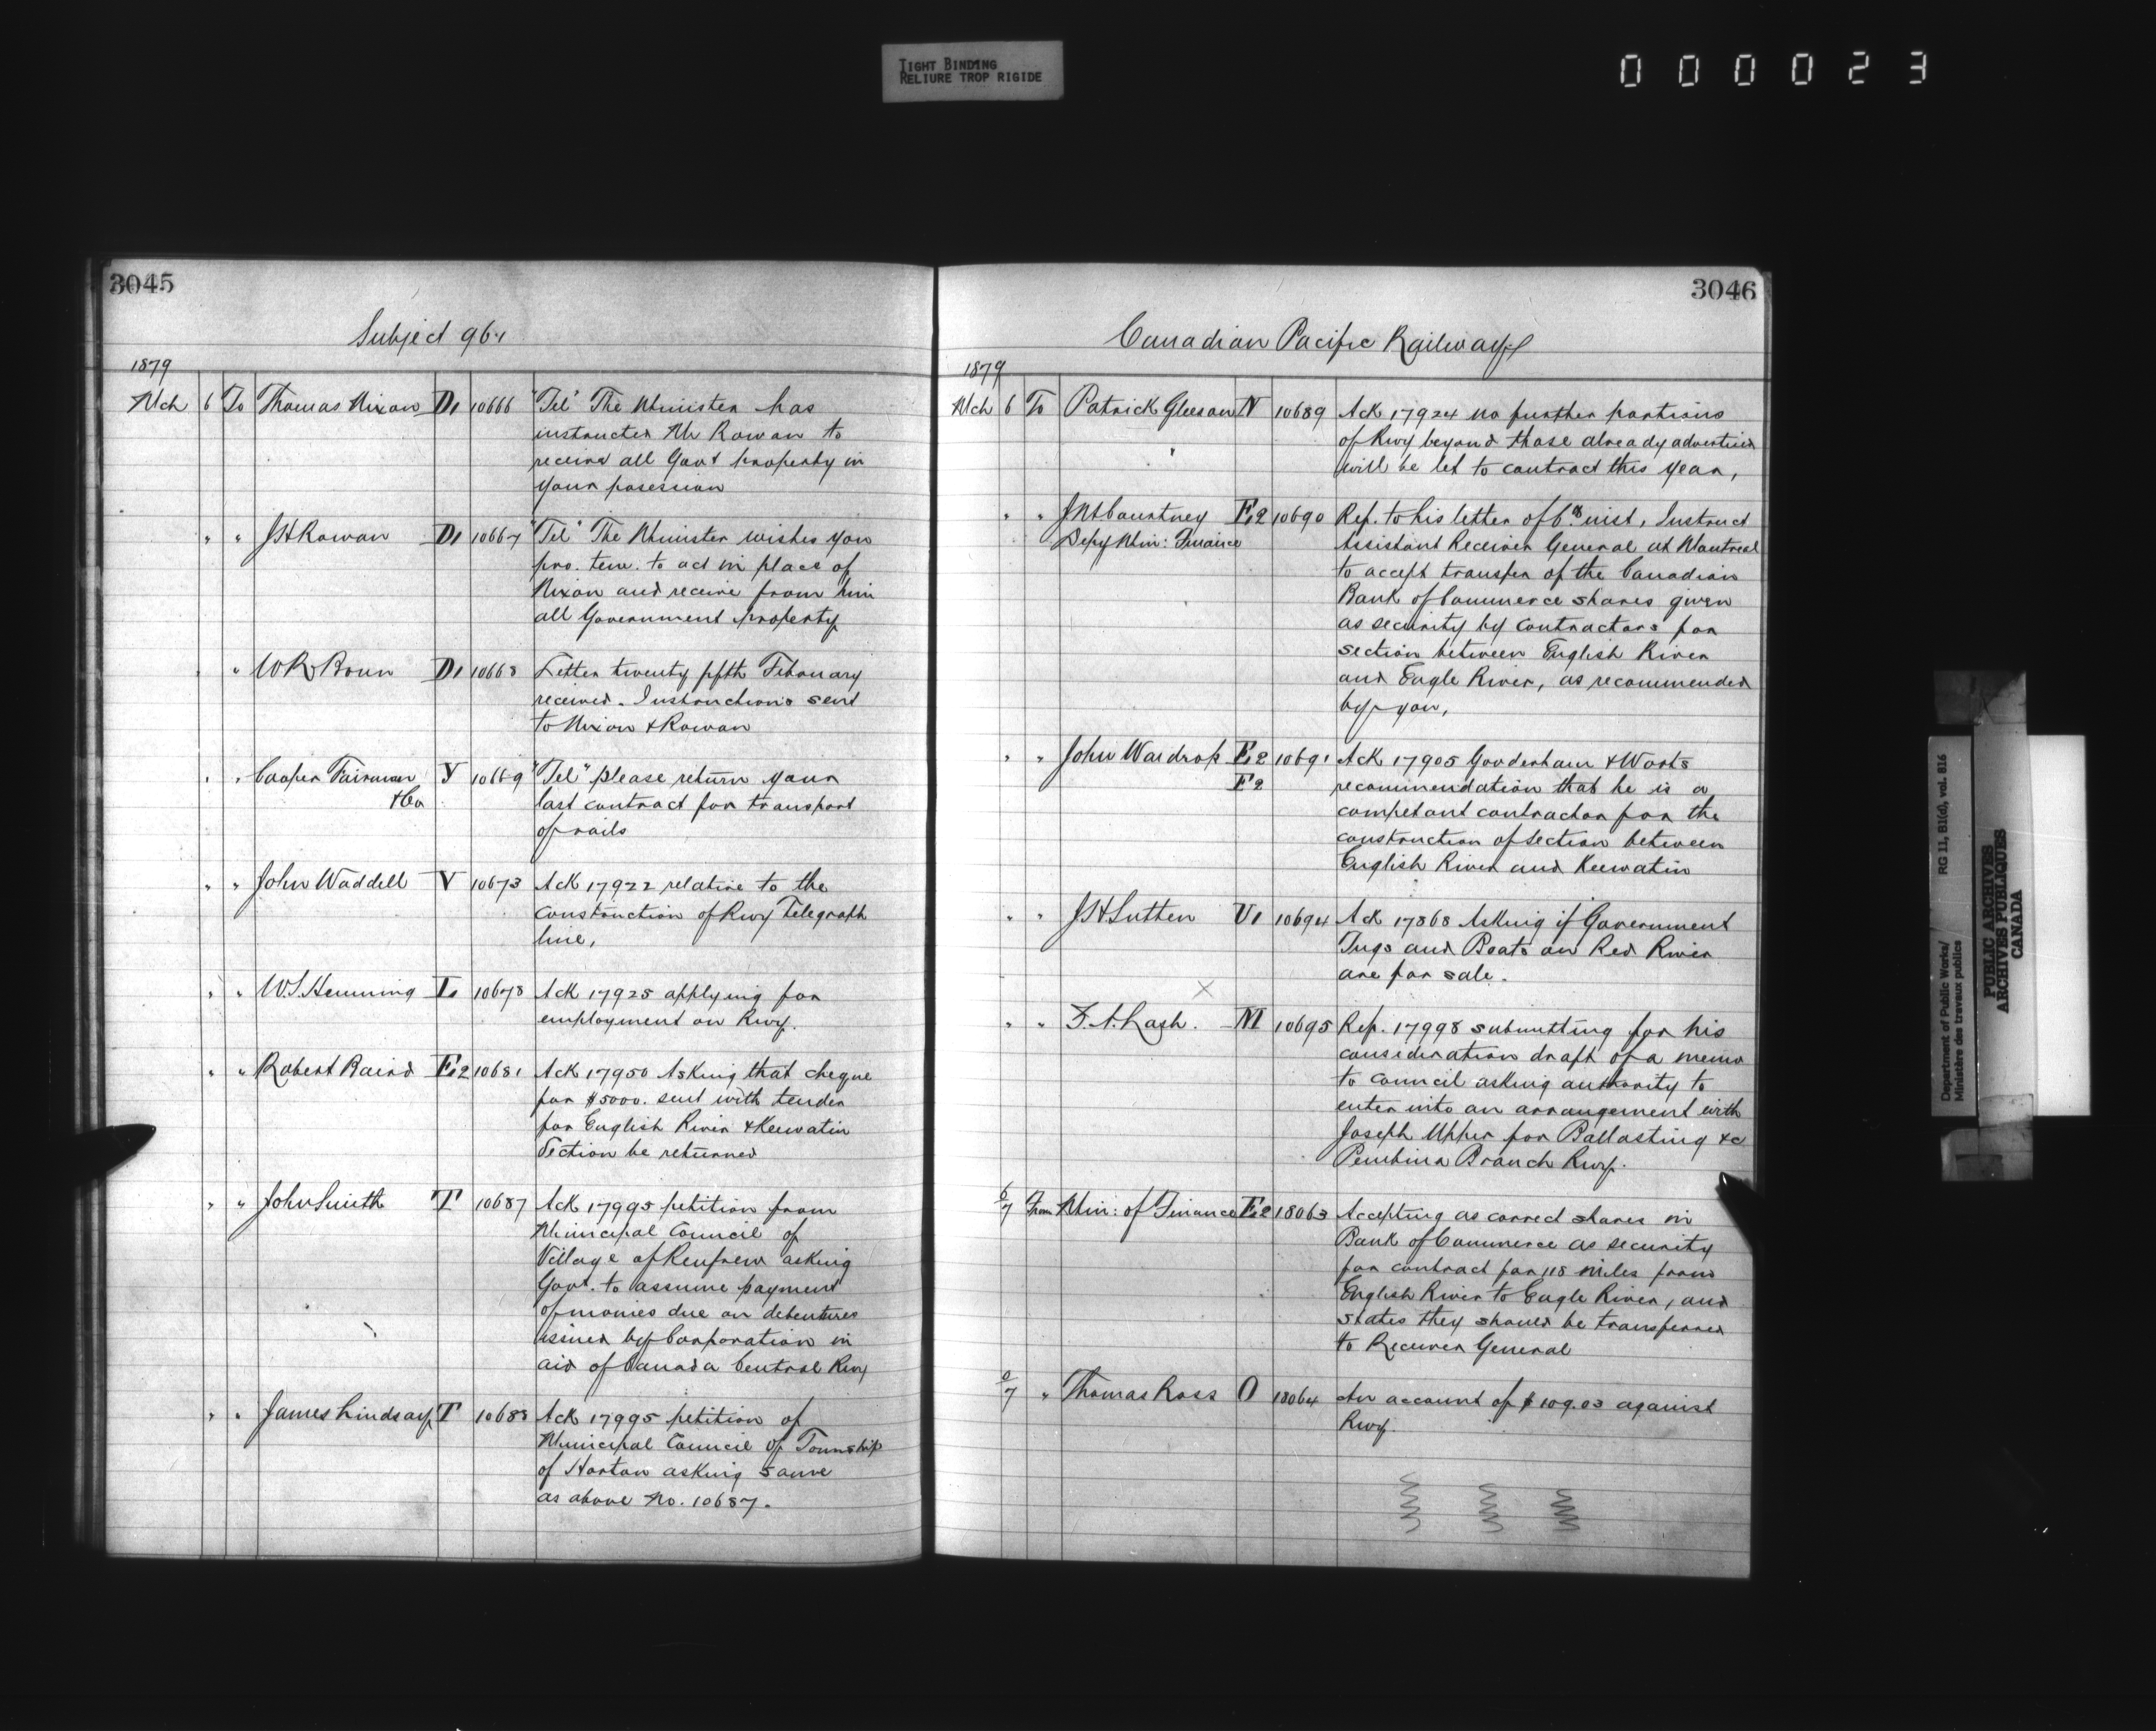 TIGHT BINDING
RELIURE TROP RIGIDE
000023
3045
Subject 964
1879
Mch 6 To Thomas Nixon D1 10666 "Tel" The Minister has
instructed Mr Rowan to
receive all Govt property in
your posession
" " J H Rowan D1 10667 "Tel" The Minister wishes you
pro. tem. to act in place of
Nixon and receive from him
all Government property
" " W R Boun D1 10668 Letter twenty fifth Febouary
received. Instructions sent
to Nixon & Rowan
" " Cooper Fairman Y 10669 "Tel" please return your
& Co last contract for transport
of rails
" " John Waddell V 10673 Ack 17922 relative to the
construction of Rwy Telegraph
line,
" " W.S. Hemming L 10678 Ack 17925 applying for
employment on Rwy.
" " Robert Baird E2 10681 Ack 17950 Asking that cheque
for $5000. sent with tender
for English River & Keewatin
Section be returned
" " John Smith T 10687 Ack 17995 petition from
Municipal Council of
Village of Renfrew asking
Govt. to assume payment
of monies due on debentures
issued by Corporation in
aid of Canada Central Rwy
" " James Lindsay T 10688 Ack 17995 petition of
Municipal Council of Township
of Horton asking same
as above No. 10687.
3046
Canadian Pacific Railway
1879
Mch 6 To Patrick Gleeson N 10689 Ack 17924 no further portions
of Rwy beyond those already advertised
will be let to contract this year,
" " J M Courtney E2 10690 Rep. to his letter of 6th inst, Instruct
Depy Min: Finance Assistant Receiver General at Montreal
to accept transfer of the Canadian
Bank of Commerce shares given
as security by contractors for
section between English River
and Eagle River, as recommended
by you,
" " John Wardrop E2 10691 Ack 17905 Gooderham & Worts
F2 recommendation that he is a
competant contractor for the
construction of section between
English River and Keewatin
" " J H Sutten U1 10694 Ack 17868 Asking if Government
Tugs and Boats on Red River
are for sale.
" " Z. A. Lash. M 10695 Rep. 17998 submitting for his
consideration draft of a memo
to Council asking authority to
enter into an arrangement with
Joseph Upper for Ballasting &c
Pembina Branch Rwy.
6/7 From Min: of Finance E2 18063 Accepting as correct shares in
Bank of Commerce as security
for contract for 118 miles from
English River to Eagle River, and
states they should be transferred
to Receiver General
6/7 " Thomas Ross O 18064 An account of $109.03 against
Rwy.
Department of Public Works/
Ministère des travaux publics
RG 11, B1(d), vol. 816
PUBLIC ARCHIVES
ARCHIVES PUBLIQUES
CANADA